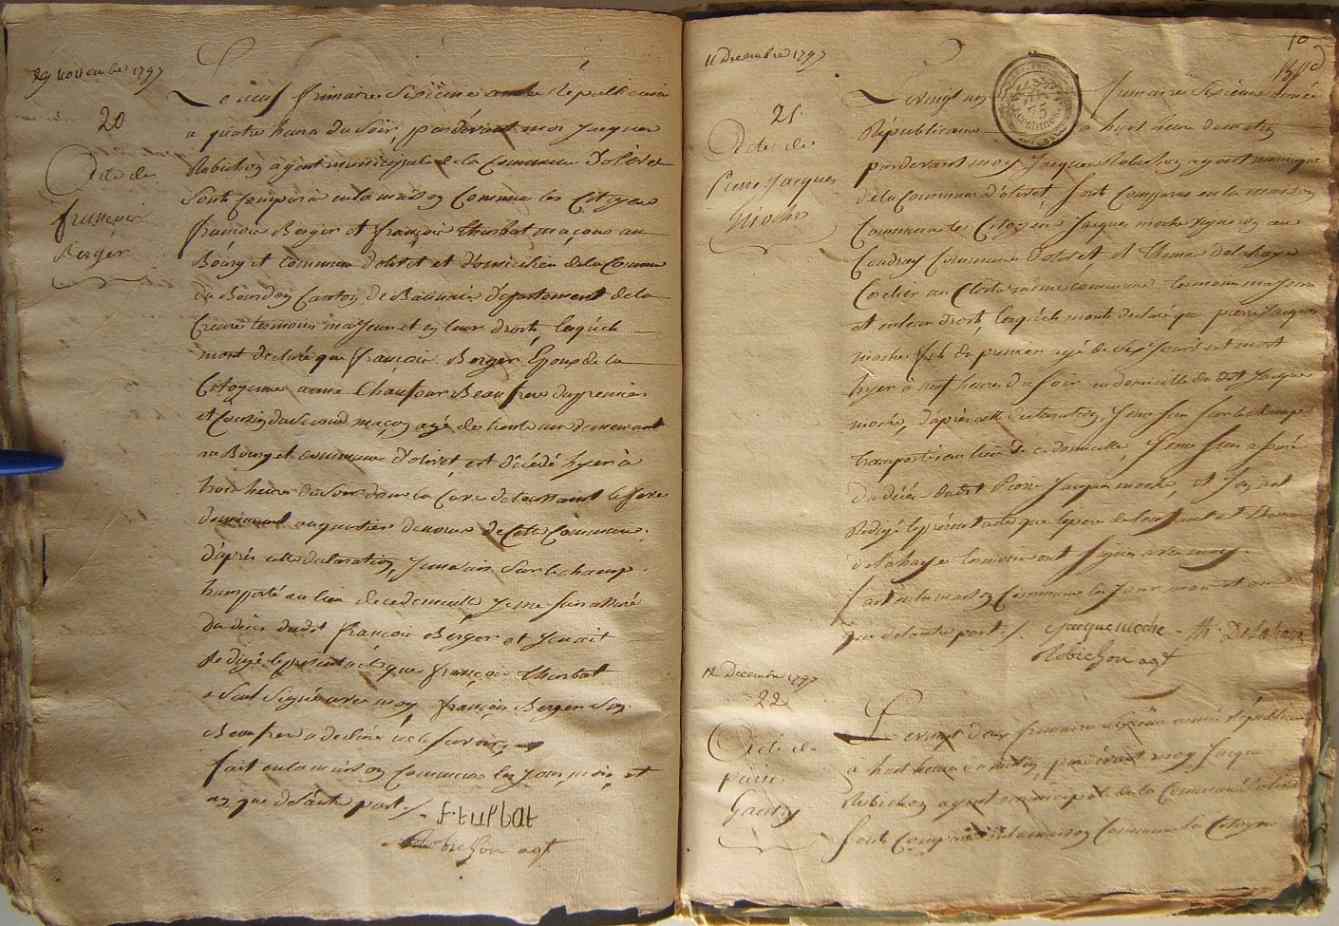 29 novembre 1797
20
Décès de
françois
Berger
Le neuf frimaire Sixième année Républicaine
a quatre heures du Soir, pardevant moy Jacques
Robichon agent municipal de la Commune d'olivet
Sont comparus en la maison Commune les Citoyens
francois Berger et françois thurbat maçons au
Bourg et commune d'olivet et domicilies de la Commune
de Canton de département de la
Creuse temoins majeurs et en leurs droits, lesquels
mont declaré que françois Berger Epoux de la
Citoyenne anne Beaufrere du premier
et Cousin du Second maçon agé de trente ans demeurant
au Bourg et commune d'olivet, est décédé hyer à
trois heures du Soir dans la
au quartier de cette Commune.
d'après cette declaration, Je me suis Sur le champ
transporté au lieu de ce domicile Je me suis assuré
du décès dudit françois Berger et J'en ait
Redigé le présent acte que françois thurbat
a Seul Signé avec moy françois Berger Son
Beaufrere a declaré ne le savoir
fait en la maison Commune les Jour, mois, et
an que dautre part /.
f. turbat
Robichon agt
11 Decembre 1797
21
Décès de
Pierre Jacques
Moche
10
Le vingt un frimaire Sixième année
Républicaine à huit heures du matin
pardevant moy Jacques Robichon agent municipal
de la Commune d'olivet, Sont Comparus en la maison
Commune les Citoyens Jacques moche vigneron au
Coudray Commune d'olivet et delahaye
au même commune temoins majeurs
et en leurs droits, lesquels mont declaré que pierre Jacques
moche fils du premier agé de Sept Jours est mort
hyer à neuf heures du Soir au domicile dudit Jacques
moche, d'après cette declaration, Je me suis sur le champ
transporté au lieu de ce domicile, Je me suis assuré
du décès dudit Pierre Jacques moche, et J'en ait
Redigé le présent acte que le pere de l'enfant et
delahaye temoins ont Signé avec moy.
fait en la maison Commune les Jour mois et an
que de l'autre part /. Jacque moche - th. Delahaye
Robichon agt
12 Décembre 1797
22
Décès de
pierre
Le vingt deux frimaire Sixième année Républicaine
à huit heures du matin, pardevant moy Jacques
Robichon agent municipal de la Commune d'olivet
Sont Comparus en la maison Commune les Citoyens